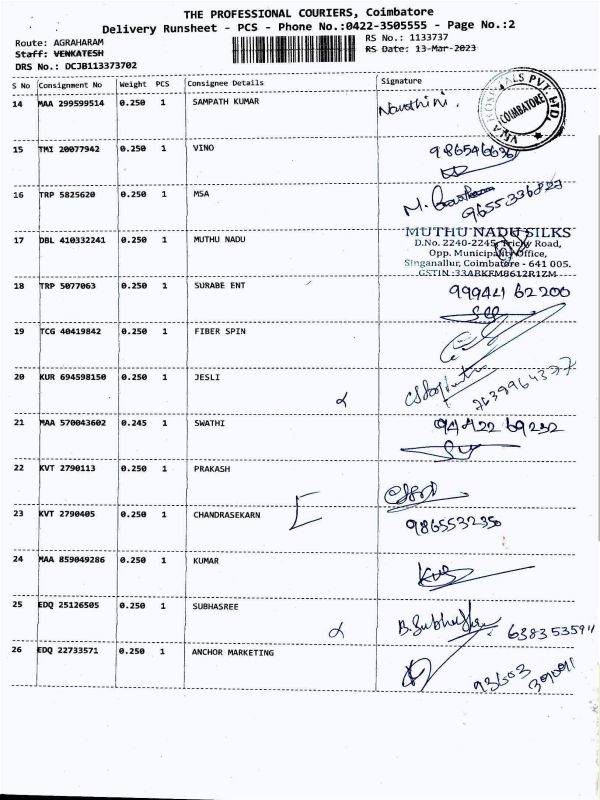 THE PROFESSIONAL COURIERS, Coimbatore
Delivery Runsheet - PCS - Phone No.:0422-3505555 - Page No.:2
Route: AGRAHARAM
RS No.: 1133737
Staff: VENKATESH
RS Date: 13-Mar-2023
DRS No.: DCJB113373702
S No Consignment No Weight PCS Consignee Details Signature
14 MAA 299599514 0.250 1 SAMPATH KUMAR
COIMBATORE
15 TMI 20077942 0.250 1 VINO
16 TRP 5825620 0.250 1 MSA
9655336823
17 DBL 410332241 0.250 1 MUTHU NADU
MUTHU NADU SILKS
D.No. 2240-2245, Trichy Road,
Opp. Municipality Office,
Singanallur, Coimbatore - 641 005.
GSTIN :33ABKFM8612R1ZM
18 TRP 5077063 0.250 1 SURABE ENT
99944 62200
19 TCG 40419842 0.250 1 FIBER SPIN
20 KUR 694598150 0.250 1 JESLI
7639964377
21 MAA 570043602 0.245 1 SWATHI
94422 69232
22 KVT 2790113 0.250 1 PRAKASH
23 KVT 2790405 0.250 1 CHANDRASEKARN
986553235
24 MAA 859049286 0.250 1 KUMAR
25 EDQ 25126505 0.250 1 SUBHASREE
638353591
26 EDQ 22733571 0.250 1 ANCHOR MARKETING
93603